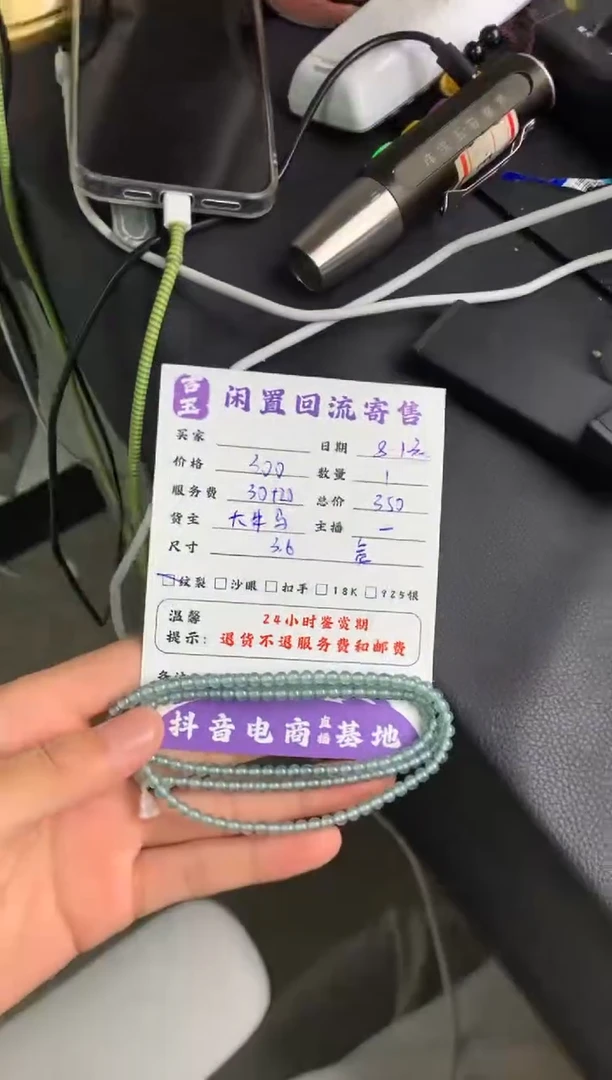 吉玉 闲置回流寄售
买家 日期
价格 300 数量 1
服务费 30+20 总价 350
货主 大牛马 主播 一
尺寸 3.6
□纹裂 □沙眼 □扣手 □18K □925银
温馨 24小时鉴赏期
提示: 退货不退服务费和邮费
抖音电商直播基地